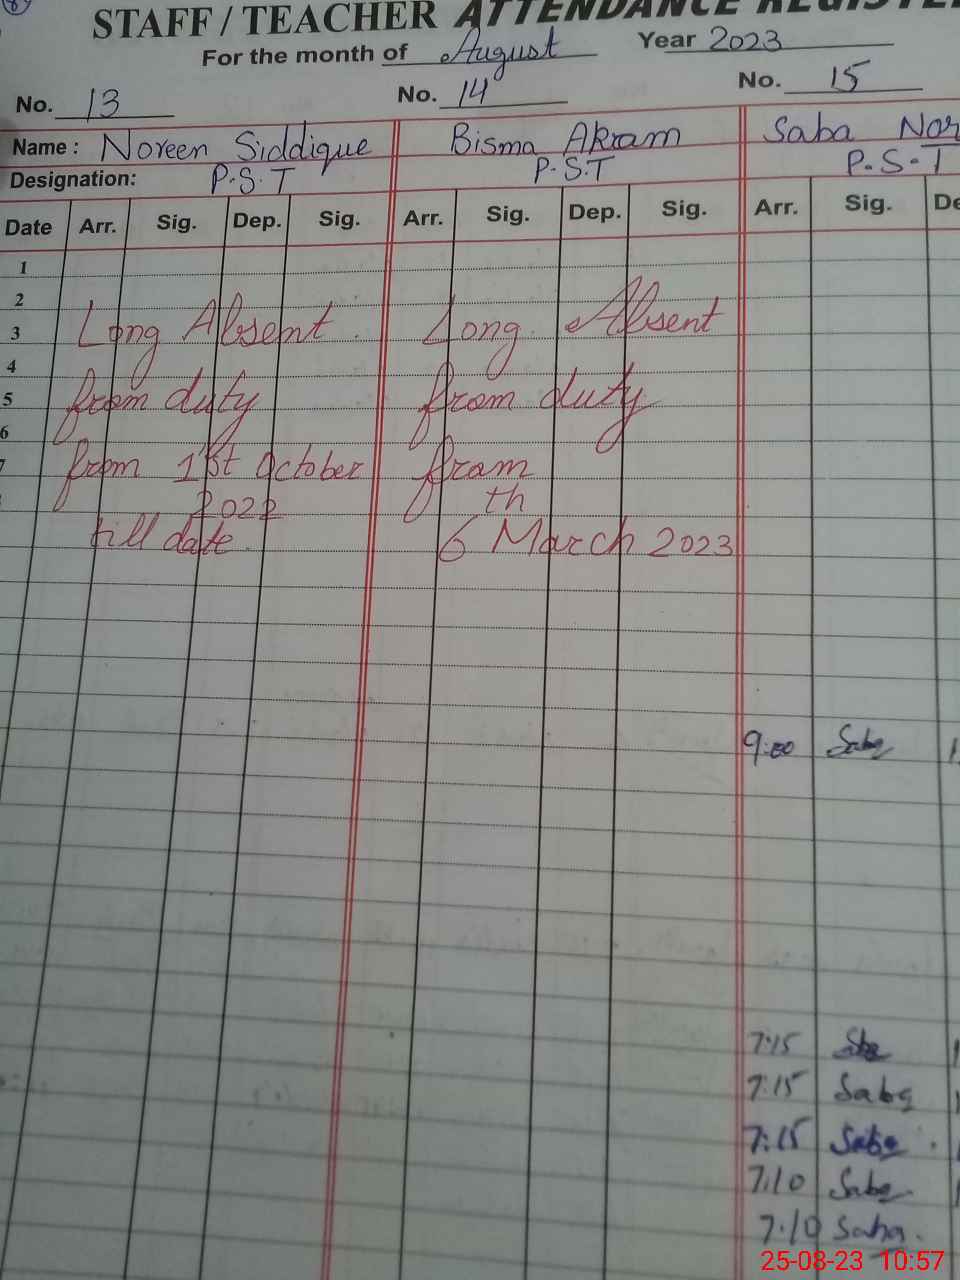 8
STAFF / TEACHER ATTENDANCE REGISTE
For the month of August Year 2023
No. 13 No. 14 No. 15
Name : Noreen Siddique Bisma Akram Saba Nor
Designation: P.S.T P.S.T P.S.T
Date Arr. Sig. Dep. Sig. Arr. Sig. Dep. Sig. Arr. Sig. De
1
2
3 Long Absent. Long Absent
4
5 from duty from duty
6
7 from 1st October from
2022 th
till date. 6 March 2023
9:00 Saba
7:15
7:15 Saba
7:15 Saba
7:10 Saba
7:10 Saba.
25-08-23 10:57